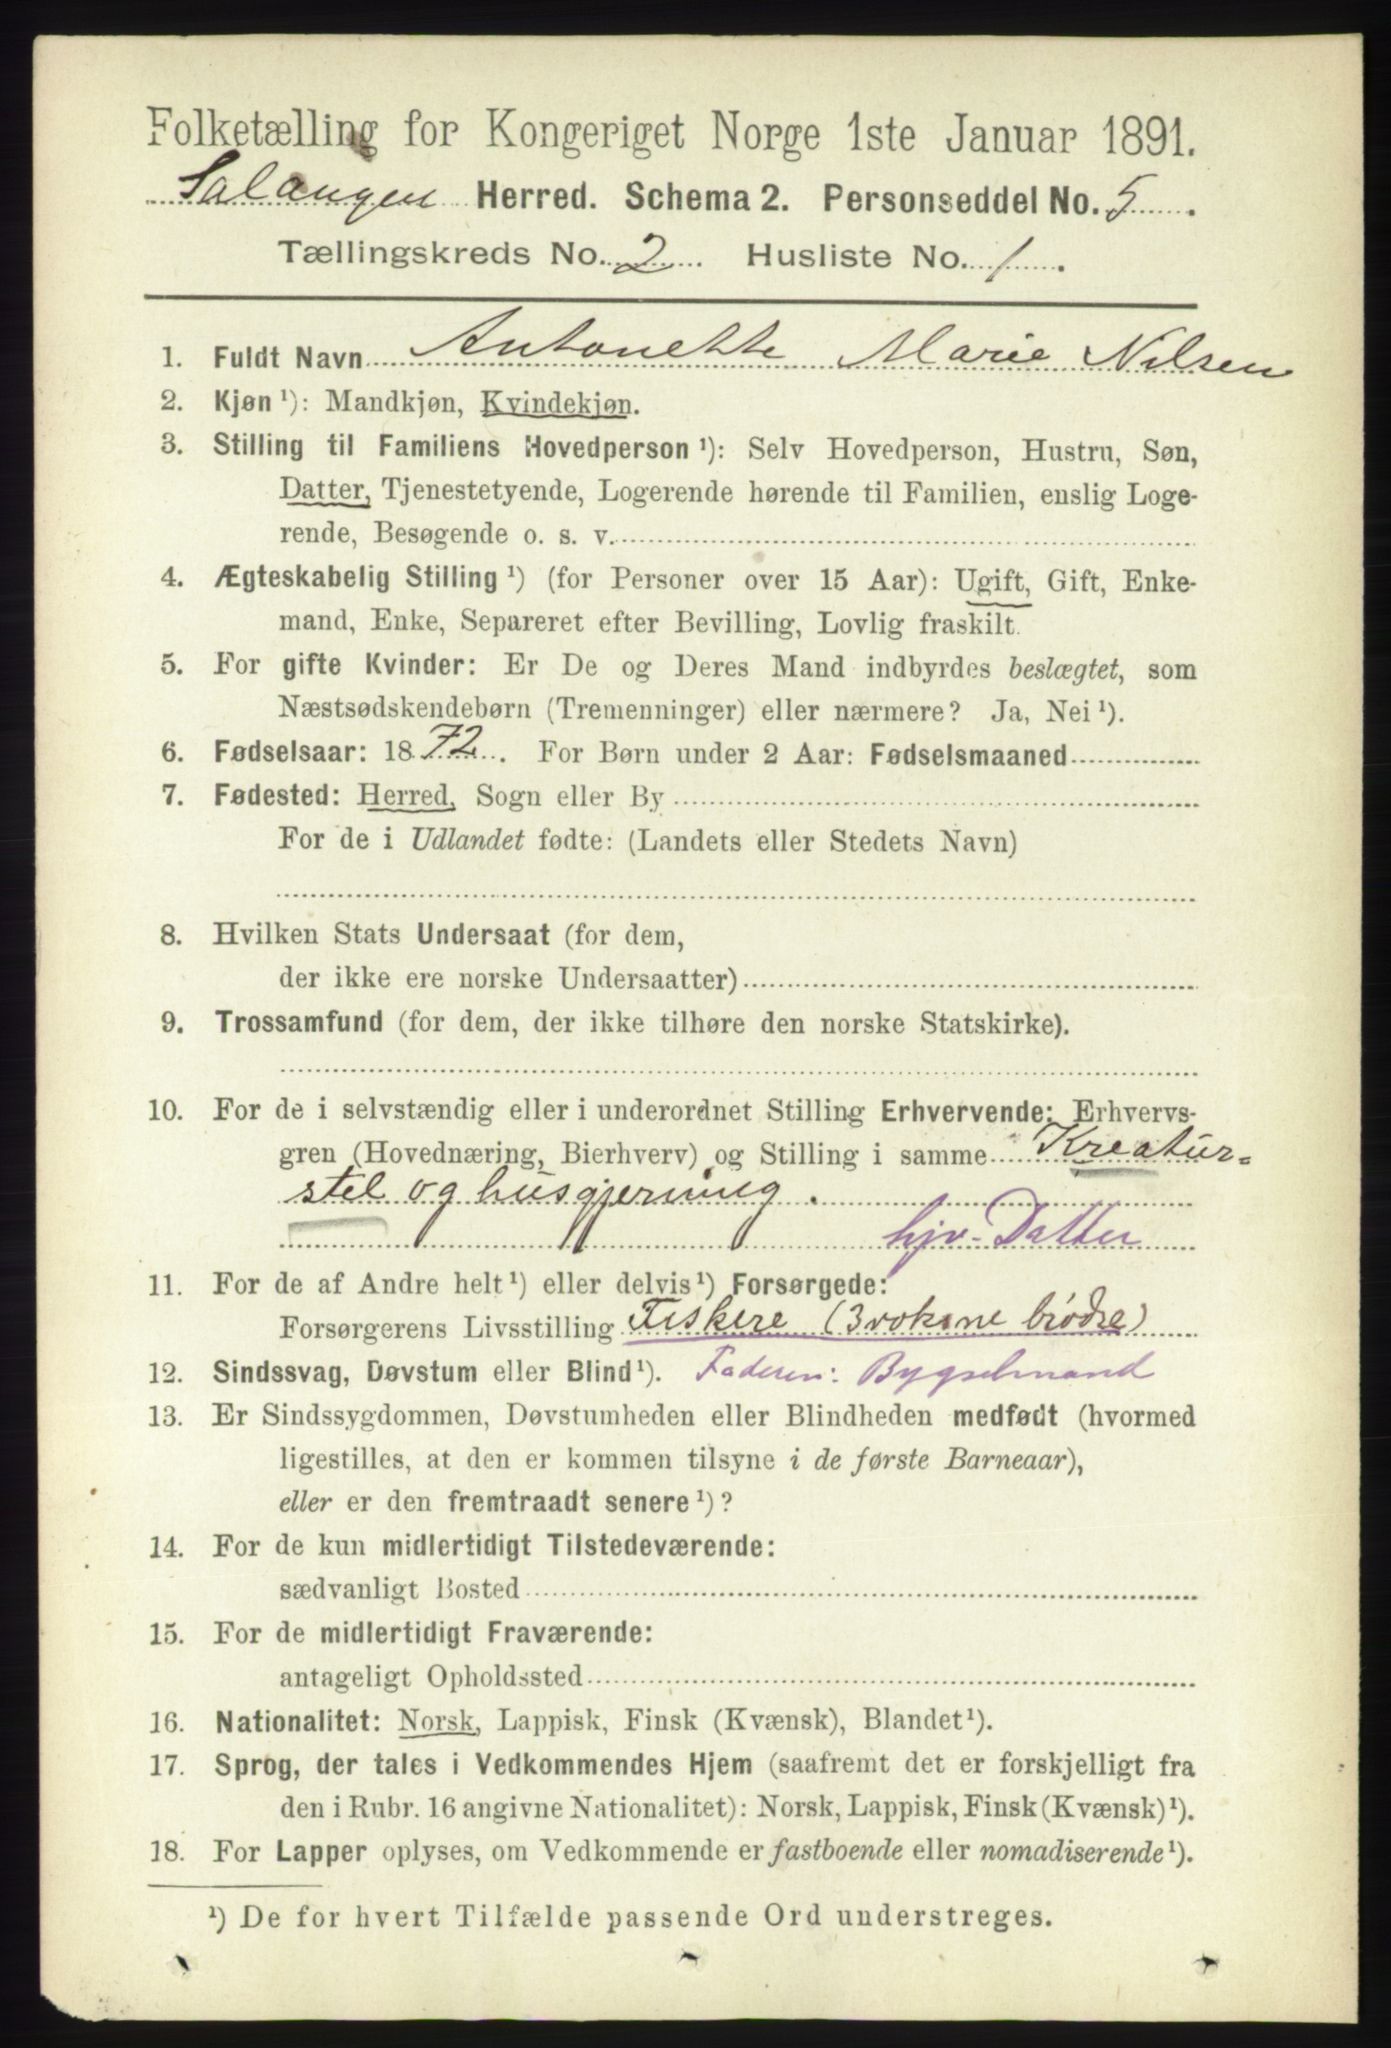 Folketælling for Kongeriget Norge 1ste Januar 1891.
Salangen Herred. Schema 2. Personseddel No. 5.
Tællingskreds No. 2. Husliste No. 1.
1. Fuldt Navn Antonette Marie Nilsen
2. Kjøn ¹): Mandkjøn, Kvindekjøn.
3. Stilling til Familiens Hovedperson ¹): Selv Hovedperson, Hustru, Søn,
Datter, Tjenestetyende, Logerende hørende til Familien, enslig Loge-
rende, Besøgende o. s. v.
4. Ægteskabelig Stilling ¹) (for Personer over 15 Aar): Ugift, Gift, Enke-
mand, Enke, Separeret efter Bevilling, Lovlig fraskilt.
5. For gifte Kvinder: Er De og Deres Mand indbyrdes beslægtet, som
Næstsødskendebørn (Tremenninger) eller nærmere? Ja, Nei ¹).
6. Fødselsaar: 1872. For Børn under 2 Aar: Fødselsmaaned
7. Fødested: Herred, Sogn eller By
For de i Udlandet fødte: (Landets eller Stedets Navn)
8. Hvilken Stats Undersaat (for dem,
der ikke ere norske Undersaatter)
9. Trossamfund (for dem, der ikke tilhøre den norske Statskirke).
10. For de i selvstændig eller i underordnet Stilling Erhvervende: Erhvervs-
gren (Hovednæring, Bierhverv) og Stilling i samme Kreatur-
stel og husgjerning.
hjv. Datter
11. For de af Andre helt ¹) eller delvis ¹) Forsørgede:
Forsørgerens Livsstilling Fiskere (3 voksne brødre)
12. Sindssvag, Døvstum eller Blind ¹). Faderen: Bygselmand
13. Er Sindssygdommen, Døvstumheden eller Blindheden medfødt (hvormed
ligestilles, at den er kommen tilsyne i de første Barneaar),
eller er den fremtraadt senere ¹)?
14. For de kun midlertidigt Tilstedeværende:
sædvanligt Bosted
15. For de midlertidigt Fraværende:
antageligt Opholdssted
16. Nationalitet: Norsk, Lappisk, Finsk (Kvænsk), Blandet ¹).
17. Sprog, der tales i Vedkommendes Hjem (saafremt det er forskjelligt fra
den i Rubr. 16 angivne Nationalitet): Norsk, Lappisk, Finsk (Kvænsk) ¹).
18. For Lapper oplyses, om Vedkommende er fastboende eller nomadiserende ¹).
¹) De for hvert Tilfælde passende Ord understreges.